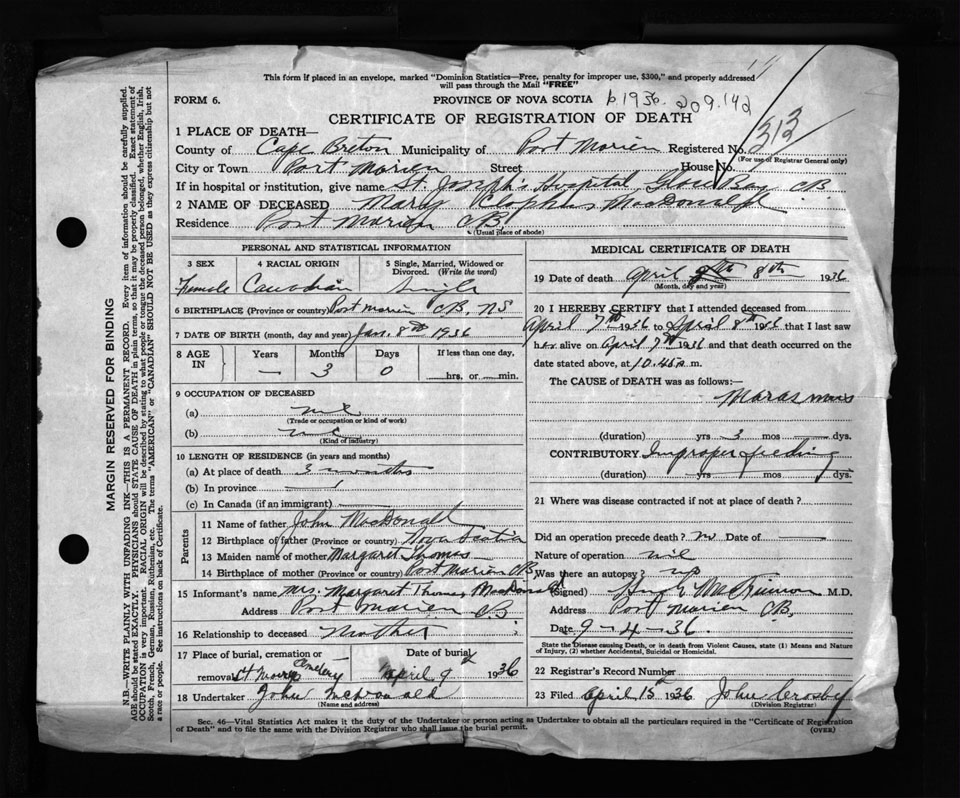 This form if placed in an envelope, marked "Dominion Statistics—Free, penalty for improper use, $300," and properly addressed
will pass through the Mail "FREE"
FORM 6.
PROVINCE OF NOVA SCOTIA b.1936. 209.142
CERTIFICATE OF REGISTRATION OF DEATH
1 PLACE OF DEATH—
County of Cape Breton Municipality of Port Morien Registered No. 313
(For use of Registrar General only)
City or Town Port Morien Street House No.
If in hospital or institution, give name St. Joseph's Hospital, Glace Bay CB.
2 NAME OF DECEASED Mary MacDonald
Residence Port Morien CB.
(Usual place of abode)
PERSONAL AND STATISTICAL INFORMATION
3 SEX
4 RACIAL ORIGIN
5 Single, Married, Widowed or Divorced. (Write the word)
Female Canadian Single
6 BIRTHPLACE (Province or country) Port Morien CB, NS
7 DATE OF BIRTH (month, day and year) Jan. 8th 1936
8 AGE IN
Years Months Days If less than one day,
— 3 0 hrs. or min.
9 OCCUPATION OF DECEASED
(a) nil
(Trade or occupation or kind of work)
(b) nil
(Kind of industry)
10 LENGTH OF RESIDENCE (in years and months)
(a) At place of death 3 months
(b) In province
(c) In Canada (if an immigrant)
Parents
11 Name of father John MacDonald
12 Birthplace of father (Province or country) Nova Scotia
13 Maiden name of mother Margaret Thomas
14 Birthplace of mother (Province or country) Port Morien CB
15 Informant's name Mrs. Margaret Thomas MacDonald
Address Port Morien C.B.
16 Relationship to deceased Mother
17 Place of burial, cremation or removal St Marys Cemetery
Date of burial April 9 1936
18 Undertaker John McDonald
(Name and address)
MEDICAL CERTIFICATE OF DEATH
19 Date of death April 8th 1936
(Month, day and year)
20 I HEREBY CERTIFY that I attended deceased from
April 7th 1936 to April 8th 1936 that I last saw
her alive on April 7th 1936 and that death occurred on the
date stated above, at 10.46 a.m.
The CAUSE of DEATH was as follows:—
Marasmus
(duration) yrs 3 mos dys.
CONTRIBUTORY Improper feeding
(duration) yrs mos dys.
21 Where was disease contracted if not at place of death?
Did an operation precede death? no Date of —
Nature of operation nil
Was there an autopsy? no
(Signed) M.D.
Address Port Morien CB.
Date 9-4-36.
State the Disease causing Death, or in death from Violent Causes, state (1) Means and Nature of Injury, (2) whether Accidental, Suicidal or Homicidal.
22 Registrar's Record Number
23 Filed April 15th 1936 John Crosby
(Division Registrar)
Sec. 46—Vital Statistics Act makes it the duty of the Undertaker or person acting as Undertaker to obtain all the particulars required in the "Certificate of Registration
of Death" and to file the same with the Division Registrar who shall issue the burial permit. (OVER)
MARGIN RESERVED FOR BINDING
N.B.—WRITE PLAINLY WITH UNFADING INK—THIS IS A PERMANENT RECORD. Every item of information should be carefully supplied.
AGE should be stated EXACTLY. PHYSICIANS should STATE CAUSE OF DEATH in plain terms, so that it may be properly classified. Exact statement of
OCCUPATION is very important. RACIAL ORIGIN will be described by stating to what people or tongue the deceased person belonged, whether English, Irish,
Scotch, French, German, Russian, Ruthenian, etc. The terms "AMERICAN" or "CANADIAN" SHOULD NOT BE USED as they express citizenship but not
a race or people. See instructions on back of Certificate.